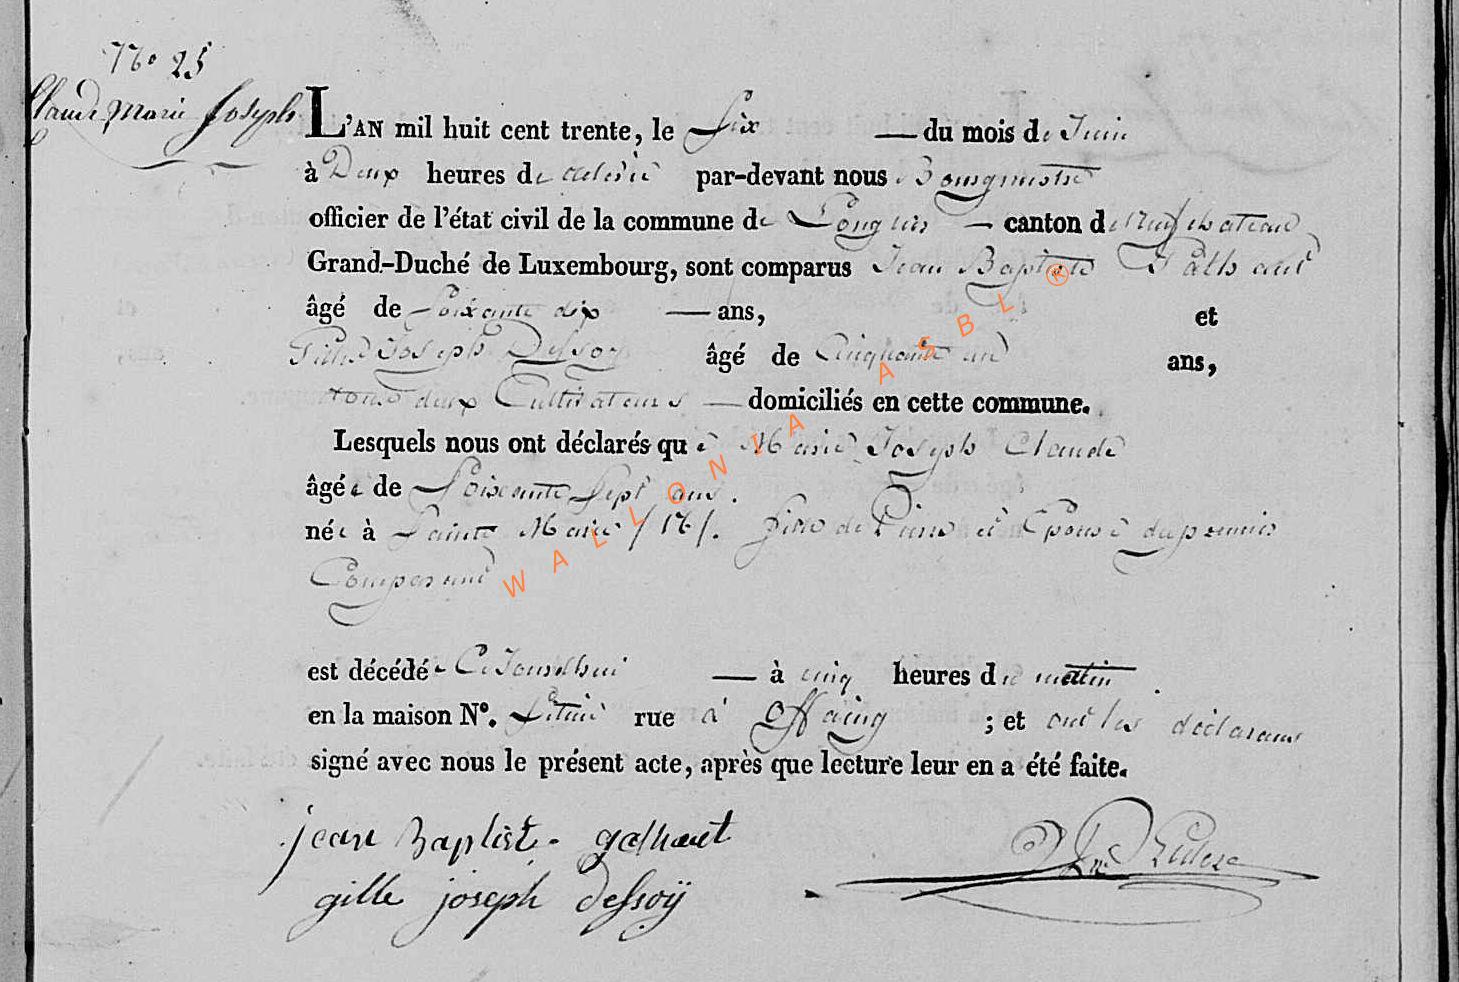 No 25
Claude Marie Joseph
L'AN mil huit cent trente, le Six — du mois de Juin
à Deux heures de relevée par-devant nous Bourgmestre
officier de l'état civil de la commune de Longlier — canton de Neufchateau
Grand-Duché de Luxembourg, sont comparus Jean Baptiste Galhaut
âgé de Soixante dix — ans, et
Gille Joseph Dessoy âgé de Cinquante un ans,
tous deux Cultivateurs — domiciliés en cette commune.
Lesquels nous ont déclarés que Marie Joseph Claude
âgée de Soixante Sept ans.
née à Sainte Marie épouse du premier
Comparant
est décédée Cejourdhui — à cinq heures du mattin.
en la maison No. Située rue à Offaing ; et ont les déclarans
signé avec nous le présent acte, après que lecture leur en a été faite.
jean Baptiste galhaut
gille joseph dessoÿ
WALLONIA ASBL ®